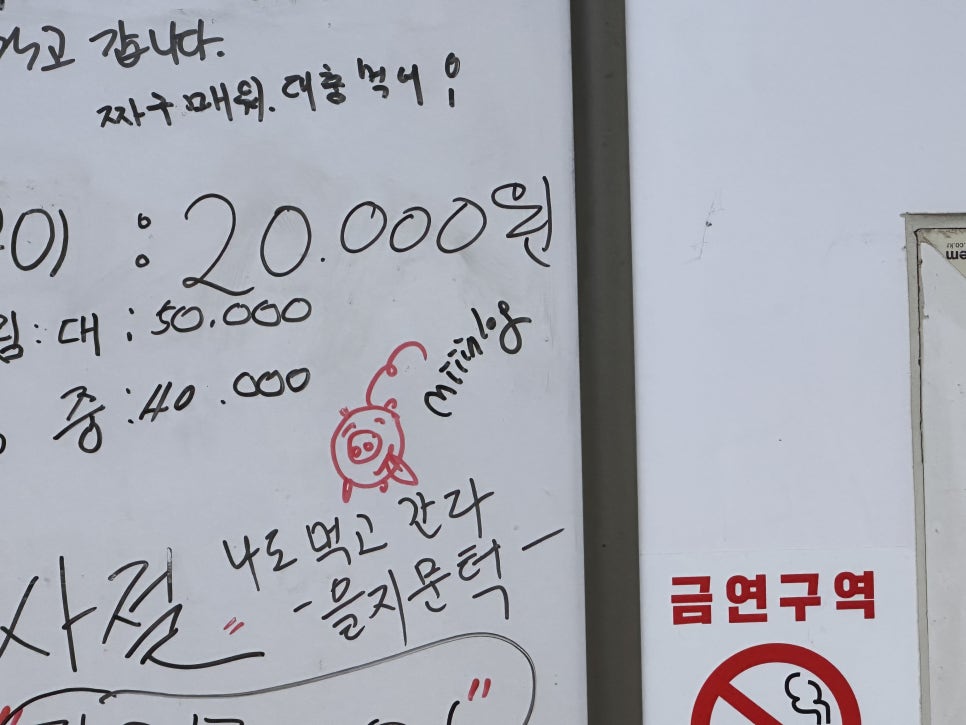 먹고 갑니다.
짜구 매워. 대충 먹어!
이 : 20.000원
림 : 대 : 50.000
중 : 40.000
miinlog
나도 먹고 간다
- 을지문턱 -
사절
금연구역